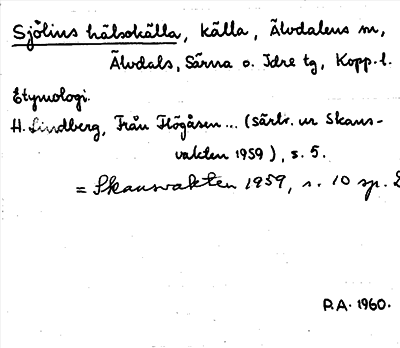 Sjölins hälsokälla, källa, Älvdalens m,
Älvdals, Särna o. Idre tg, Kopp. l.
Etymologi.
H. Lindberg, Från Högåsen... (särtr. ur Skans-
vakten 1959), s. 5.
= Skansvakten 1959, s. 10 sp.
P.A. 1960.